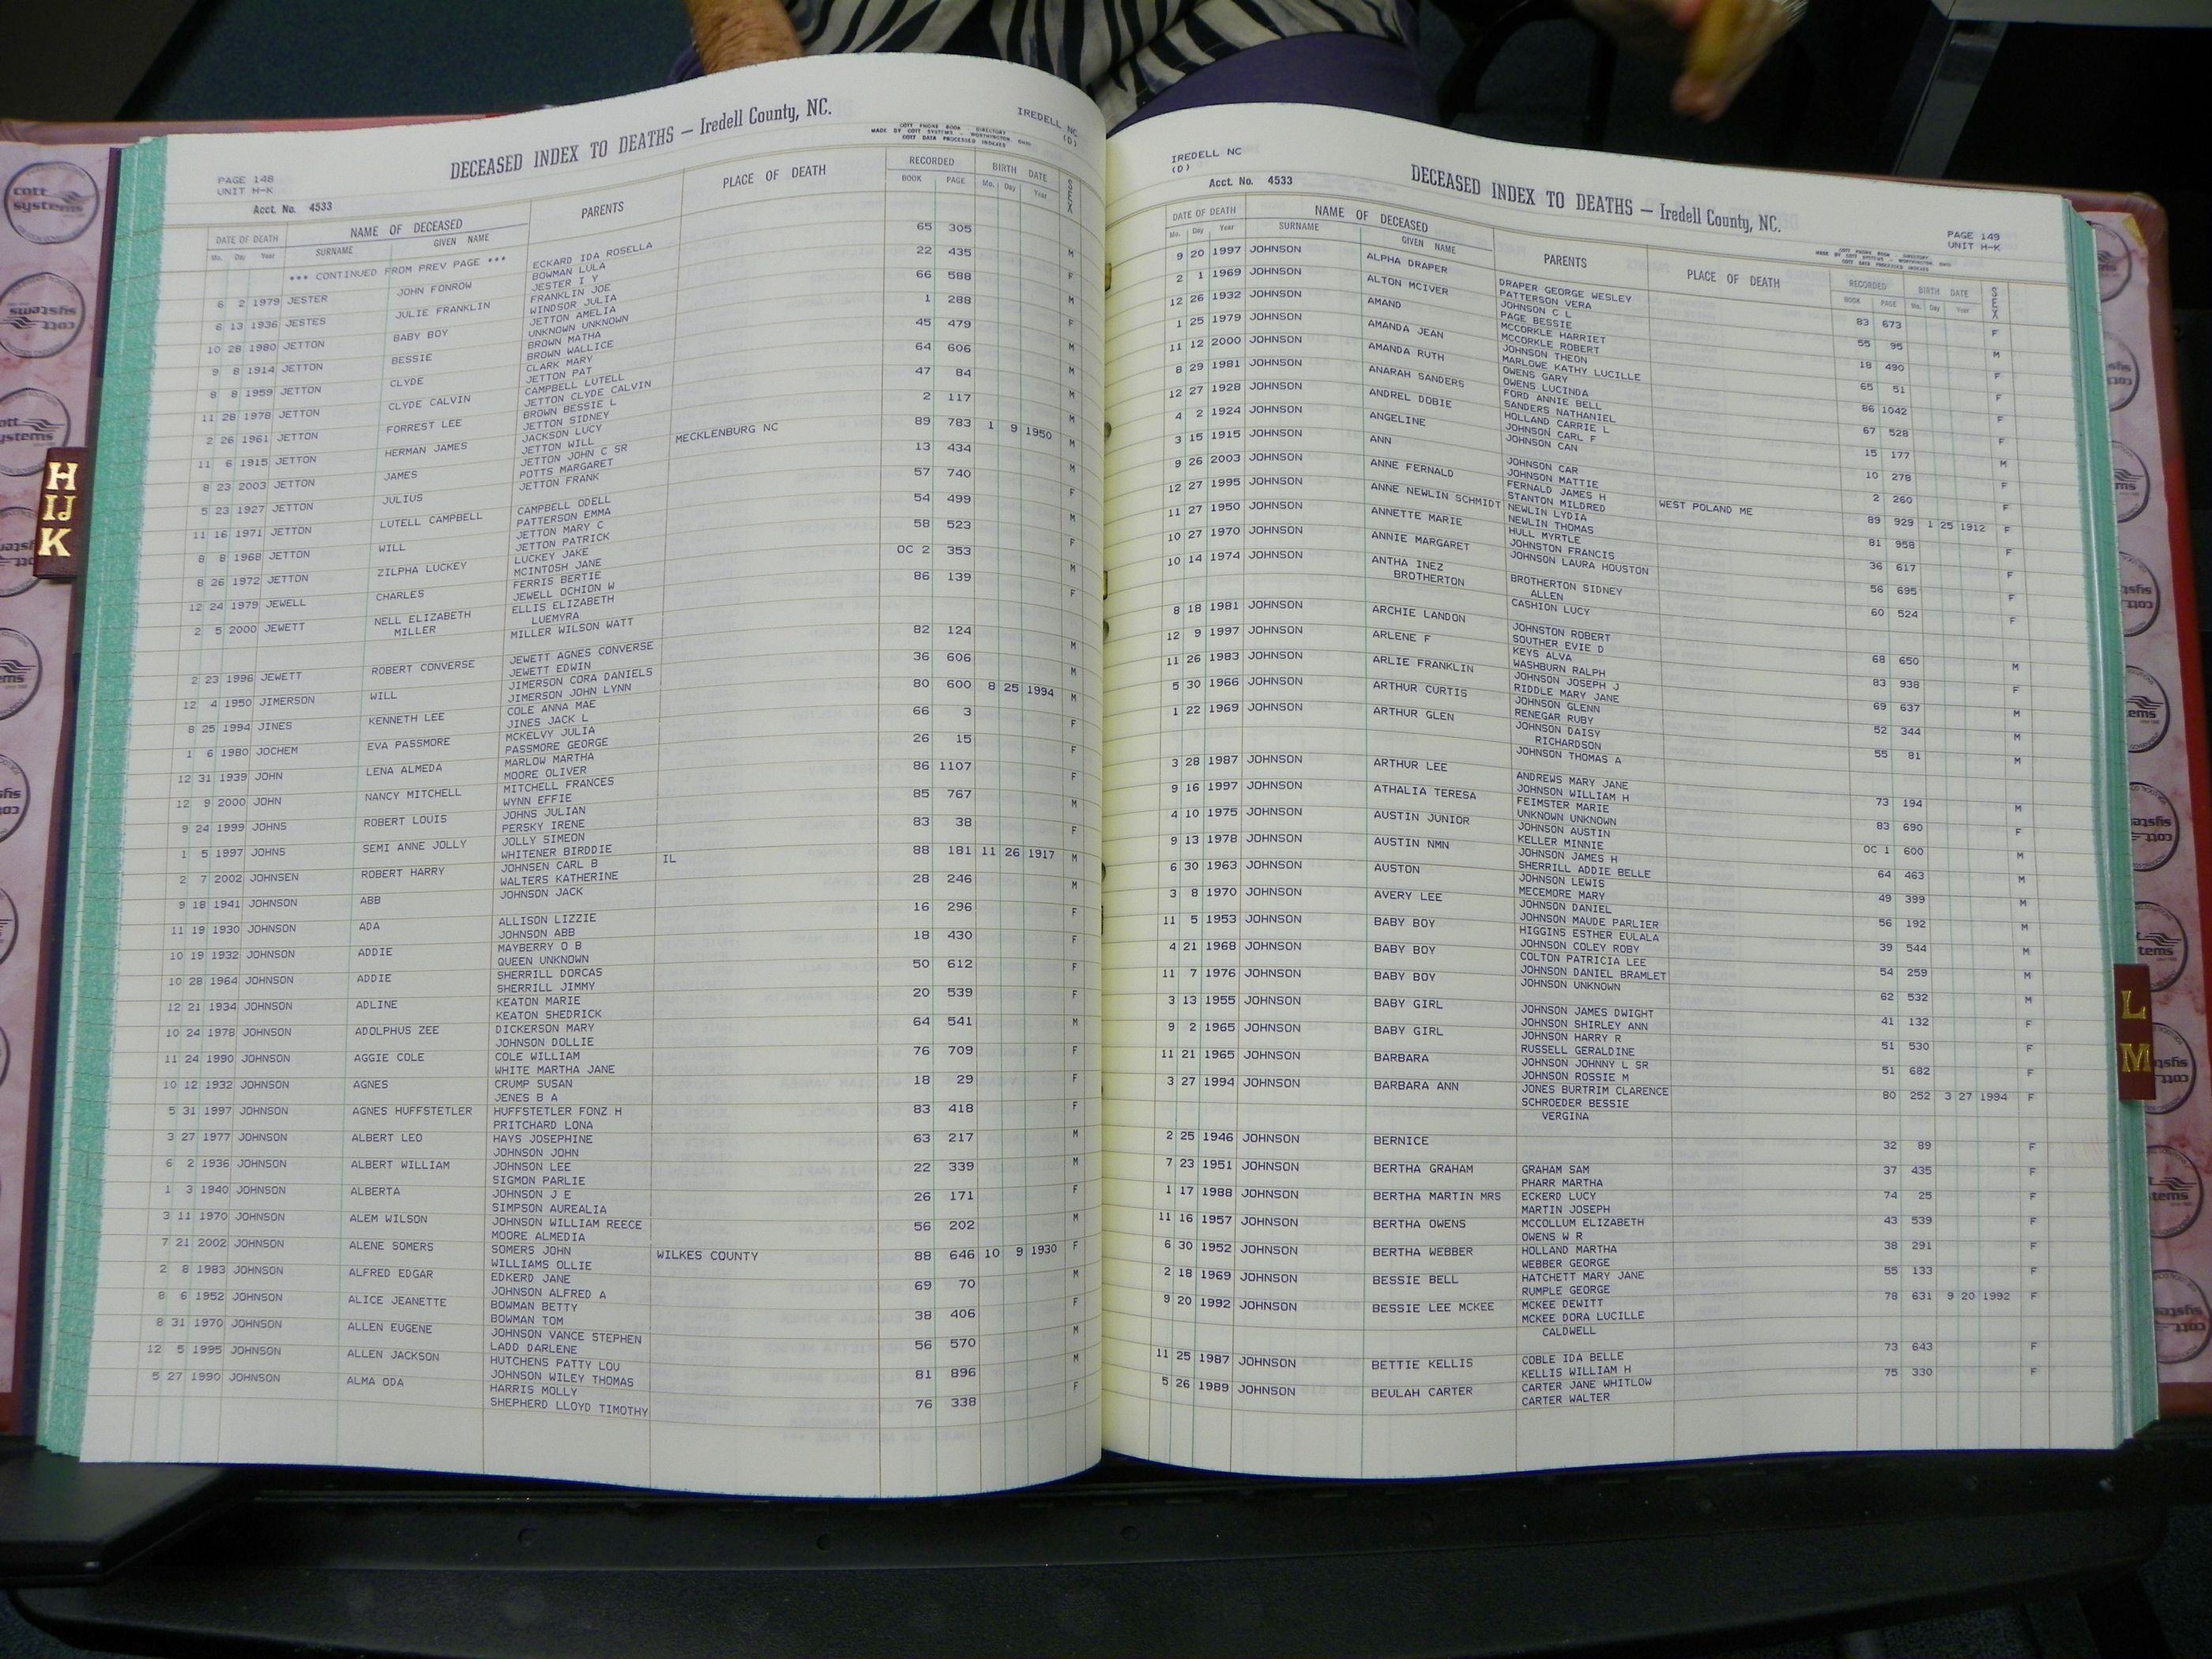 PAGE 148
UNIT H-K
Acct. No. 4533
DECEASED INDEX TO DEATHS — Iredell County, NC.
IREDELL NC
(D)
COTT PHONE BOOK - DIRECTORY
MADE BY COTT SYSTEMS - WORTHINGTON, OHIO
COTT DATA PROCESSED INDEXES
DATE OF DEATH NAME OF DECEASED PARENTS PLACE OF DEATH RECORDED BIRTH DATE SEX
Mo. Day Year SURNAME GIVEN NAME BOOK PAGE Mo. Day Year
*** CONTINUED FROM PREV PAGE *** ECKARD IDA ROSELLA
6 2 1979 JESTER JOHN FONROW BOWMAN LULA 65 305 M
JESTER I Y
6 13 1936 JESTES JULIE FRANKLIN FRANKLIN JOE 22 435 F
WINDSOR JULIA
10 28 1980 JETTON BABY BOY JETTON AMELIA 66 588 M
UNKNOWN UNKNOWN
9 8 1914 JETTON BESSIE BROWN MATHA 1 288 F
BROWN WALLICE
8 8 1959 JETTON CLYDE CLARK MARY 45 479 M
JETTON PAT
11 28 1978 JETTON CLYDE CALVIN CAMPBELL LUTELL 64 606 M
JETTON CLYDE CALVIN
2 26 1961 JETTON FORREST LEE BROWN BESSIE L 47 84 M
JETTON SIDNEY
11 6 1915 JETTON HERMAN JAMES JACKSON LUCY 2 117 M
JETTON WILL
8 23 2003 JETTON JAMES JETTON JOHN C SR MECKLENBURG NC 89 783 1 9 1950 M
POTTS MARGARET
5 23 1927 JETTON JULIUS JETTON FRANK 13 434 M
11 16 1971 JETTON LUTELL CAMPBELL CAMPBELL ODELL 57 740 F
PATTERSON EMMA
8 8 1968 JETTON WILL JETTON MARY C 54 499 M
JETTON PATRICK
8 26 1972 JETTON ZILPHA LUCKEY LUCKEY JAKE 58 523 F
MCINTOSH JANE
12 24 1979 JEWELL CHARLES FERRIS BERTIE OC 2 353 M
JEWELL OCHION W
2 5 2000 JEWETT NELL ELIZABETH ELLIS ELIZABETH 86 139 F
MILLER LUEMYRA
MILLER WILSON WATT
2 23 1996 JEWETT ROBERT CONVERSE JEWETT AGNES CONVERSE 82 124 M
JEWETT EDWIN
12 4 1950 JIMERSON WILL JIMERSON CORA DANIELS 36 606 M
JIMERSON JOHN LYNN
8 25 1994 JINES KENNETH LEE COLE ANNA MAE 80 600 8 25 1994 M
JINES JACK L
1 6 1980 JOCHEM EVA PASSMORE MCKELVY JULIA 66 3 F
PASSMORE GEORGE
12 31 1939 JOHN LENA ALMEDA MARLOW MARTHA 26 15 F
MOORE OLIVER
12 9 2000 JOHN NANCY MITCHELL MITCHELL FRANCES 86 1107 F
WYNN EFFIE
9 24 1999 JOHNS ROBERT LOUIS JOHNS JULIAN 85 767 M
PERSKY IRENE
1 5 1997 JOHNS SEMI ANNE JOLLY JOLLY SIMEON 83 38 F
WHITENER BIRDDIE
2 7 2002 JOHNSEN ROBERT HARRY JOHNSEN CARL B IL 88 181 11 26 1917 M
WALTERS KATHERINE
9 18 1941 JOHNSON ABB JOHNSON JACK 28 246 M
11 19 1930 JOHNSON ADA ALLISON LIZZIE 16 296 F
JOHNSON ABB
10 19 1932 JOHNSON ADDIE MAYBERRY O B 18 430 F
QUEEN UNKNOWN
10 28 1964 JOHNSON ADDIE SHERRILL DORCAS 50 612 F
SHERRILL JIMMY
12 21 1934 JOHNSON ADLINE KEATON MARIE 20 539 F
KEATON SHEDRICK
10 24 1978 JOHNSON ADOLPHUS ZEE DICKERSON MARY 64 541 M
JOHNSON DOLLIE
11 24 1990 JOHNSON AGGIE COLE COLE WILLIAM 76 709 F
WHITE MARTHA JANE
10 12 1932 JOHNSON AGNES CRUMP SUSAN 18 29 F
JENES B A
5 31 1997 JOHNSON AGNES HUFFSTETLER HUFFSTETLER FONZ H 83 418 F
PRITCHARD LONA
3 27 1977 JOHNSON ALBERT LEO HAYS JOSEPHINE 63 217 M
JOHNSON JOHN
6 2 1936 JOHNSON ALBERT WILLIAM JOHNSON LEE 22 339 M
SIGMON PARLIE
1 3 1940 JOHNSON ALBERTA JOHNSON J E 26 171 F
SIMPSON AUREALIA
3 11 1970 JOHNSON ALEM WILSON JOHNSON WILLIAM REECE 56 202 M
MOORE ALMEDIA
7 21 2002 JOHNSON ALENE SOMERS SOMERS JOHN WILKES COUNTY 88 646 10 9 1930 F
WILLIAMS OLLIE
2 8 1983 JOHNSON ALFRED EDGAR EDKERD JANE 69 70 M
JOHNSON ALFRED A
8 6 1952 JOHNSON ALICE JEANETTE BOWMAN BETTY 38 406 F
BOWMAN TOM
8 31 1970 JOHNSON ALLEN EUGENE JOHNSON VANCE STEPHEN 56 570 M
LADD DARLENE
12 5 1995 JOHNSON ALLEN JACKSON HUTCHENS PATTY LOU 81 896 M
JOHNSON WILEY THOMAS
5 27 1990 JOHNSON ALMA ODA HARRIS MOLLY 76 338 F
SHEPHERD LLOYD TIMOTHY
IREDELL NC
(D)
Acct. No. 4533
DECEASED INDEX TO DEATHS — Iredell County, NC.
PAGE 149
UNIT H-K
COTT PHONE BOOK - DIRECTORY
MADE BY COTT SYSTEMS - WORTHINGTON, OHIO
COTT DATA PROCESSED INDEXES
DATE OF DEATH NAME OF DECEASED PARENTS PLACE OF DEATH RECORDED BIRTH DATE SEX
Mo. Day Year SURNAME GIVEN NAME BOOK PAGE Mo. Day Year
9 20 1997 JOHNSON ALPHA DRAPER DRAPER GEORGE WESLEY 83 673 F
PATTERSON VERA
2 1 1969 JOHNSON ALTON MCIVER JOHNSON C L 55 95 M
PAGE BESSIE
12 26 1932 JOHNSON AMAND MCCORKLE HARRIET 18 490 F
MCCORKLE ROBERT
1 25 1979 JOHNSON AMANDA JEAN JOHNSON THEON 65 51 F
MARLOWE KATHY LUCILLE
11 12 2000 JOHNSON AMANDA RUTH OWENS GARY 86 1042 F
OWENS LUCINDA
8 29 1981 JOHNSON ANARAH SANDERS FORD ANNIE BELL 67 528 F
SANDERS NATHANIEL
12 27 1928 JOHNSON ANDREL DOBIE HOLLAND CARRIE L 15 177 M
JOHNSON CARL F
4 2 1924 JOHNSON ANGELINE JOHNSON CAN 10 278 F
3 15 1915 JOHNSON ANN JOHNSON CAR 2 260 F
JOHNSON MATTIE
9 26 2003 JOHNSON ANNE FERNALD FERNALD JAMES H WEST POLAND ME 89 929 1 25 1912 F
STANTON MILDRED
12 27 1995 JOHNSON ANNE NEWLIN SCHMIDT NEWLIN LYDIA 81 958 F
NEWLIN THOMAS
11 27 1950 JOHNSON ANNETTE MARIE HULL MYRTLE 36 617 F
JOHNSTON FRANCIS
10 27 1970 JOHNSON ANNIE MARGARET JOHNSON LAURA HOUSTON 56 695 F
10 14 1974 JOHNSON ANTHA INEZ BROTHERTON SIDNEY 60 524 F
BROTHERTON ALLEN
CASHION LUCY
8 18 1981 JOHNSON ARCHIE LANDON JOHNSTON ROBERT 68 650 M
SOUTHER EVIE D
12 9 1997 JOHNSON ARLENE F KEYS ALVA 83 938 F
WASHBURN RALPH
11 26 1983 JOHNSON ARLIE FRANKLIN JOHNSON JOSEPH J 69 637 M
RIDDLE MARY JANE
5 30 1966 JOHNSON ARTHUR CURTIS JOHNSON GLENN 52 344 M
RENEGAR RUBY
1 22 1969 JOHNSON ARTHUR GLEN JOHNSON DAISY 55 81 M
RICHARDSON
JOHNSON THOMAS A
3 28 1987 JOHNSON ARTHUR LEE ANDREWS MARY JANE 73 194 M
JOHNSON WILLIAM H
9 16 1997 JOHNSON ATHALIA TERESA FEIMSTER MARIE 83 690 F
UNKNOWN UNKNOWN
4 10 1975 JOHNSON AUSTIN JUNIOR JOHNSON AUSTIN OC 1 600 M
KELLER MINNIE
9 13 1978 JOHNSON AUSTIN NMN JOHNSON JAMES H 64 463 M
SHERRILL ADDIE BELLE
6 30 1963 JOHNSON AUSTON JOHNSON LEWIS 49 399 M
MECEMORE MARY
3 8 1970 JOHNSON AVERY LEE JOHNSON DANIEL 56 192 M
JOHNSON MAUDE PARLIER
11 5 1953 JOHNSON BABY BOY HIGGINS ESTHER EULALA 39 544 M
JOHNSON COLEY ROBY
4 21 1968 JOHNSON BABY BOY COLTON PATRICIA LEE 54 259 M
JOHNSON DANIEL BRAMLET
11 7 1976 JOHNSON BABY BOY JOHNSON UNKNOWN 62 532 M
3 13 1955 JOHNSON BABY GIRL JOHNSON JAMES DWIGHT 41 132 F
JOHNSON SHIRLEY ANN
9 2 1965 JOHNSON BABY GIRL JOHNSON HARRY R 51 530 F
RUSSELL GERALDINE
11 21 1965 JOHNSON BARBARA JOHNSON JOHNNY L SR 51 682 F
JOHNSON ROSSIE M
3 27 1994 JOHNSON BARBARA ANN JONES BURTRIM CLARENCE 80 252 3 27 1994 F
SCHROEDER BESSIE
VERGINA
2 25 1946 JOHNSON BERNICE 32 89 F
7 23 1951 JOHNSON BERTHA GRAHAM GRAHAM SAM 37 435 F
PHARR MARTHA
1 17 1988 JOHNSON BERTHA MARTIN MRS ECKERD LUCY 74 25 F
MARTIN JOSEPH
11 16 1957 JOHNSON BERTHA OWENS MCCOLLUM ELIZABETH 43 539 F
OWENS W R
6 30 1952 JOHNSON BERTHA WEBBER HOLLAND MARTHA 38 291 F
WEBBER GEORGE
2 18 1969 JOHNSON BESSIE BELL HATCHETT MARY JANE 55 133 F
RUMPLE GEORGE
9 20 1992 JOHNSON BESSIE LEE MCKEE MCKEE DEWITT 78 631 9 20 1992 F
MCKEE DORA LUCILLE
CALDWELL
11 25 1987 JOHNSON BETTIE KELLIS COBLE IDA BELLE 73 643 F
KELLIS WILLIAM H
5 26 1989 JOHNSON BEULAH CARTER CARTER JANE WHITLOW 75 330 F
CARTER WALTER
H
IJ
K
L
M
cott
systems